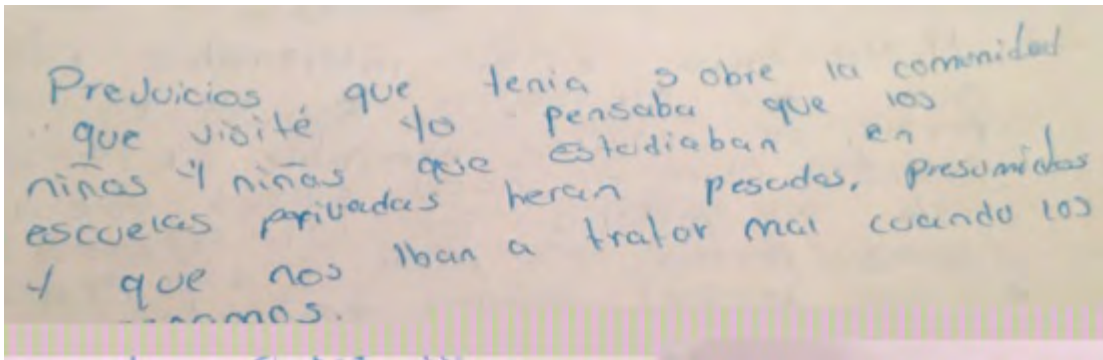 Prejuicios que tenia sobre la comunidad
que visité yo pensaba que los
niñas y niñas que estudiaban en
escuelas pprivadas heran pesadas, presumidas
y que nos iban a tratar mal cuando los